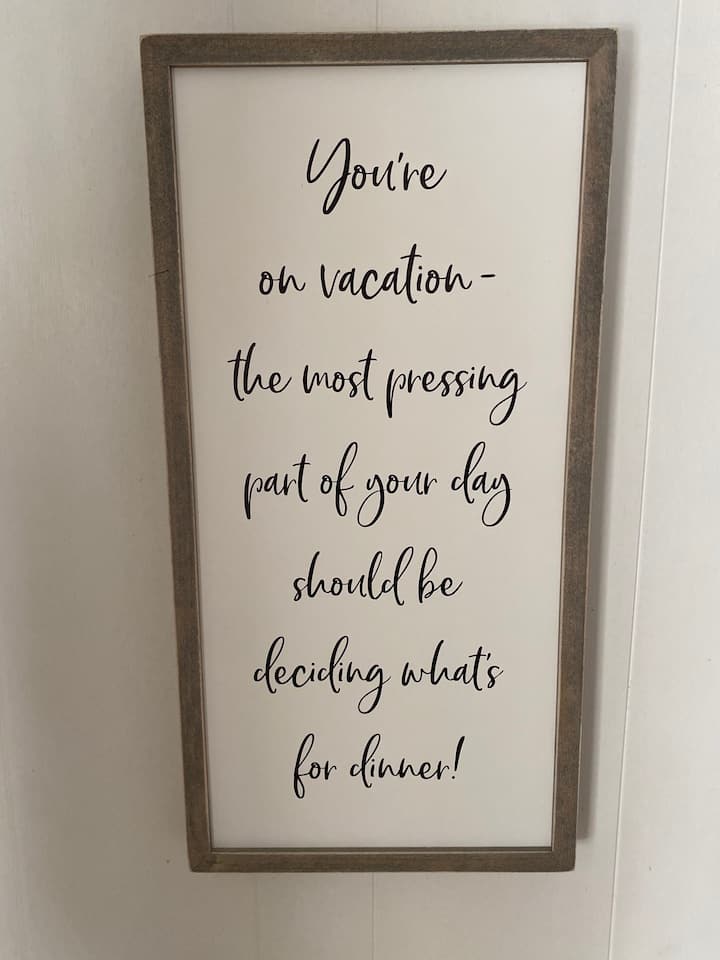 You're
on vacation -
the most pressing
part of your day
should be
deciding what's
for dinner!